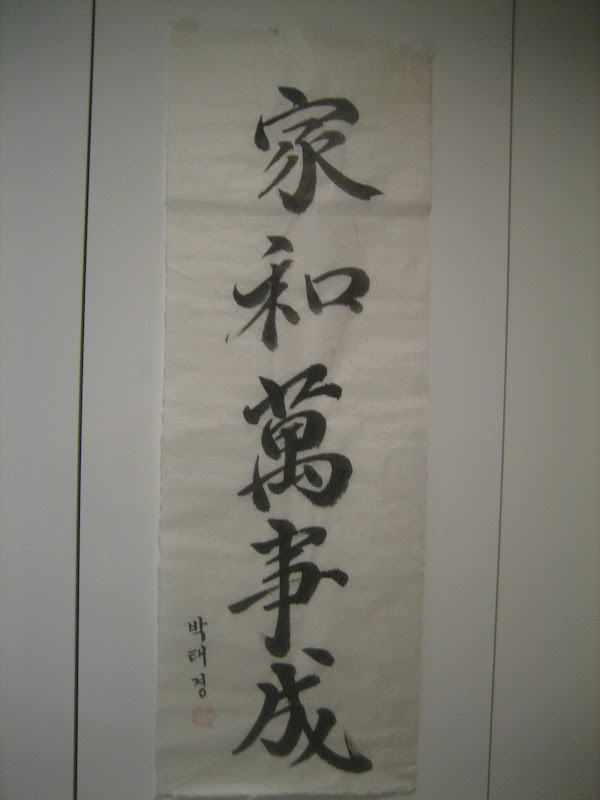 家和萬事成
박태경